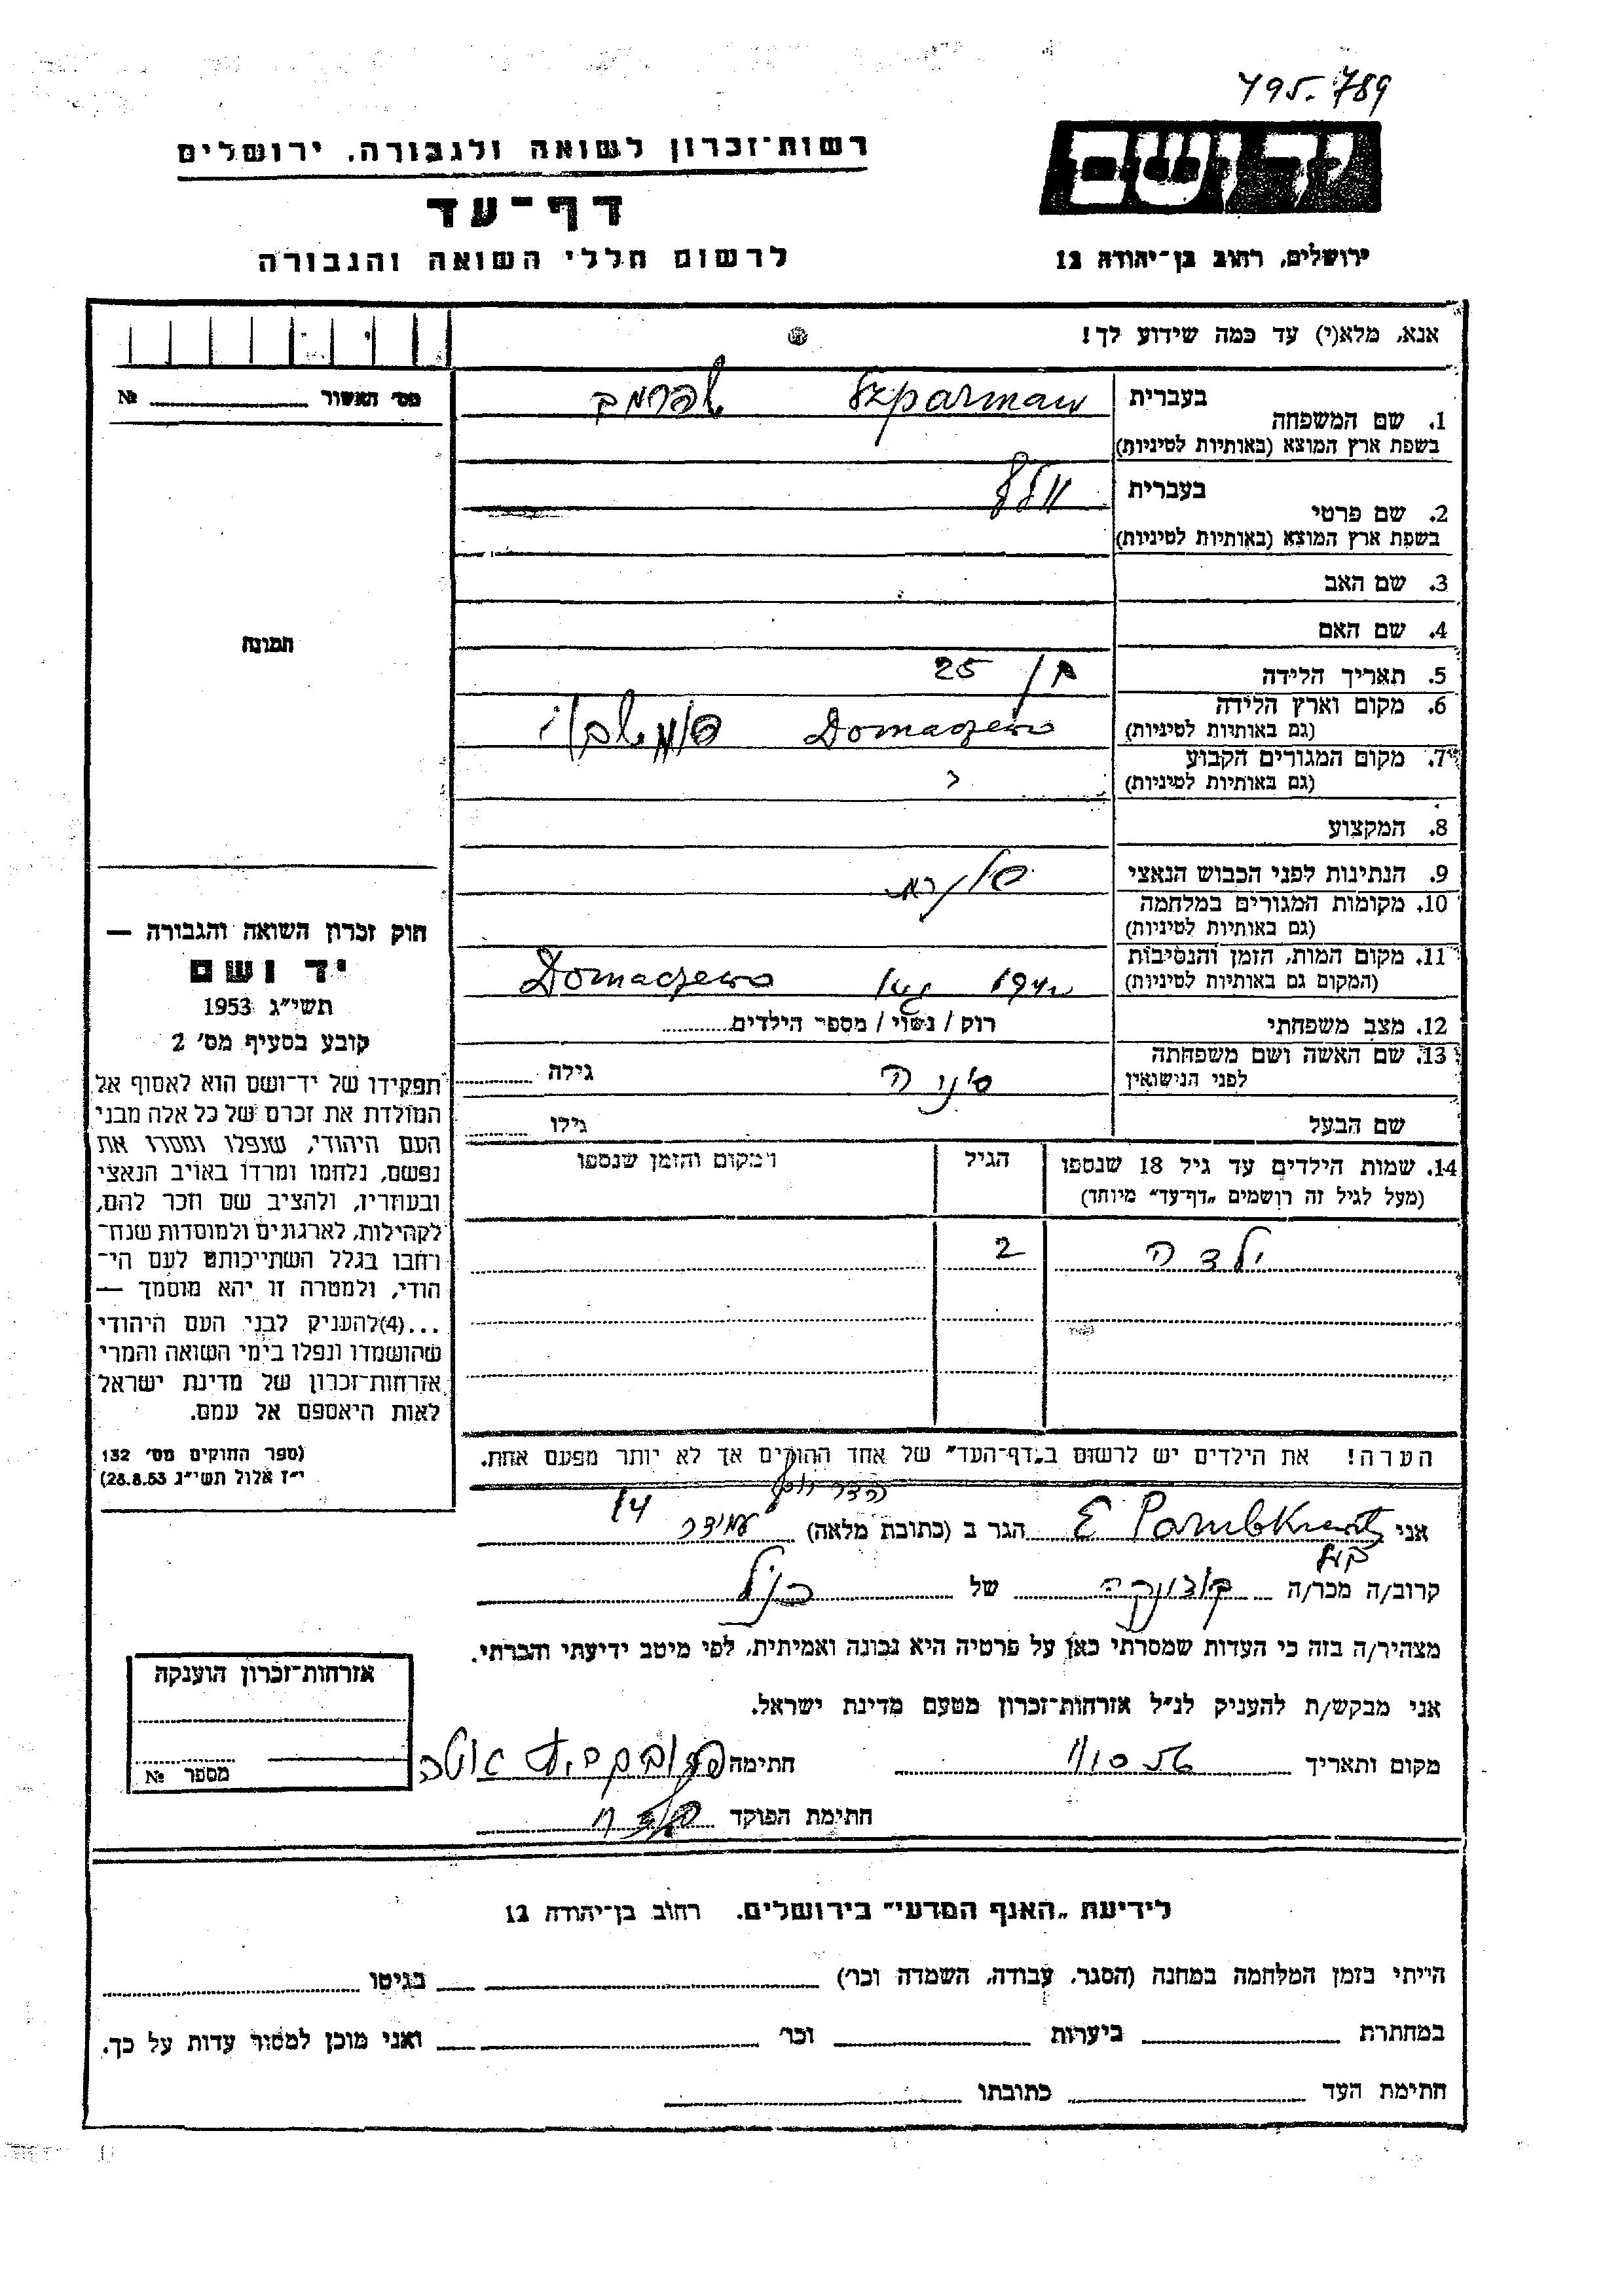 495.789
רשות־זכרון לשואה ולגבורה, ירושלים
ידושם
דף־עד
לרשום חללי השואה והגבורה
ירושלים, רחוב בן־יהודה 12
אנא, מלא(י) עד כמה שידוע לך!
מס׳ האשור № 
1. שם המשפחה
בעברית
Szparman שפרמן
בשפת ארץ המוצא (באותיות לטיניות)
2. שם פרטי
בעברית
בשפת ארץ המוצא (באותיות לטיניות)
3. שם האב
4. שם האם
תמונה
5. תאריך הלידה
25
6. מקום וארץ הלידה
(גם באותיות לטיניות)
Domaczewo
7. מקום המגורים הקבוע
(גם באותיות לטיניות)
8. המקצוע
9. הנתינות לפני הכבוש הנאצי
10. מקומות המגורים במלחמה
(גם באותיות לטיניות)
11. מקום המות, הזמן והנסיבות
(המקום גם באותיות לטיניות)
Domaczewo
12. מצב משפחתי
רוק / נשוי / מספר הילדים
13. שם האשה ושם משפחתה
לפני הנישואין
גילה
שם הבעל
גילו
14. שמות הילדים עד גיל 18 שנספו
(מעל לגיל זה רושמים „דף־עד״ מיוחד)
הגיל
המקום והזמן שנספו
ילדה 2
הערה! את הילדים יש לרשום ב„דף־העד״ של אחד ההורים אך לא יותר מפעם אחת.
חוק זכרון השואה והגבורה —
יד ושם
תשי״ג 1953
קובע בסעיף מס׳ 2
תפקידו של יד־ושם הוא לאסוף אל
המולדת את זכרם של כל אלה מבני
העם היהודי, שנפלו ומסרו את
נפשם, נלחמו ומרדו באויב הנאצי
ובעוזריו, ולהציב שם וזכר להם,
לקהילות, לארגונים ולמוסדות שנח־
רחבו בגלל השתייכותם לעם הי־
הודי, ולמטרה זו יהא מוסמך —
...(4)להעניק לבני העם היהודי
שהושמדו ונפלו בימי השואה והמרי
אזרחות־זכרון של מדינת ישראל
לאות היאספם אל עמם.
(ספר החוקים מס׳ 132
י״ז אלול תשי״ג 28.8.53)
אני
הגר ב (כתובת מלאה) עמידר 14
קרוב/ה מכר/ה של הנ״ל
מצהיר/ה בזה כי העדות שמסרתי כאן על פרטיה היא נכונה ואמיתית, לפי מיטב ידיעתי והכרתי.
אני מבקש/ת להעניק לנ״ל אזרחות־זכרון מטעם מדינת ישראל.
מקום ותאריך
חתימה
חתימת הפוקד
אזרחות־זכרון הוענקה
מספר №
לידיעת „האגף המדעי״ בירושלים. רחוב בן־יהודה 12
הייתי בזמן המלחמה במחנה (הסגר, עבודה, השמדה וכו׳) בגיטו
במחתרת ביערות וכו׳ ואני מוכן למסור עדות על כך.
חתימת העד כתובתו